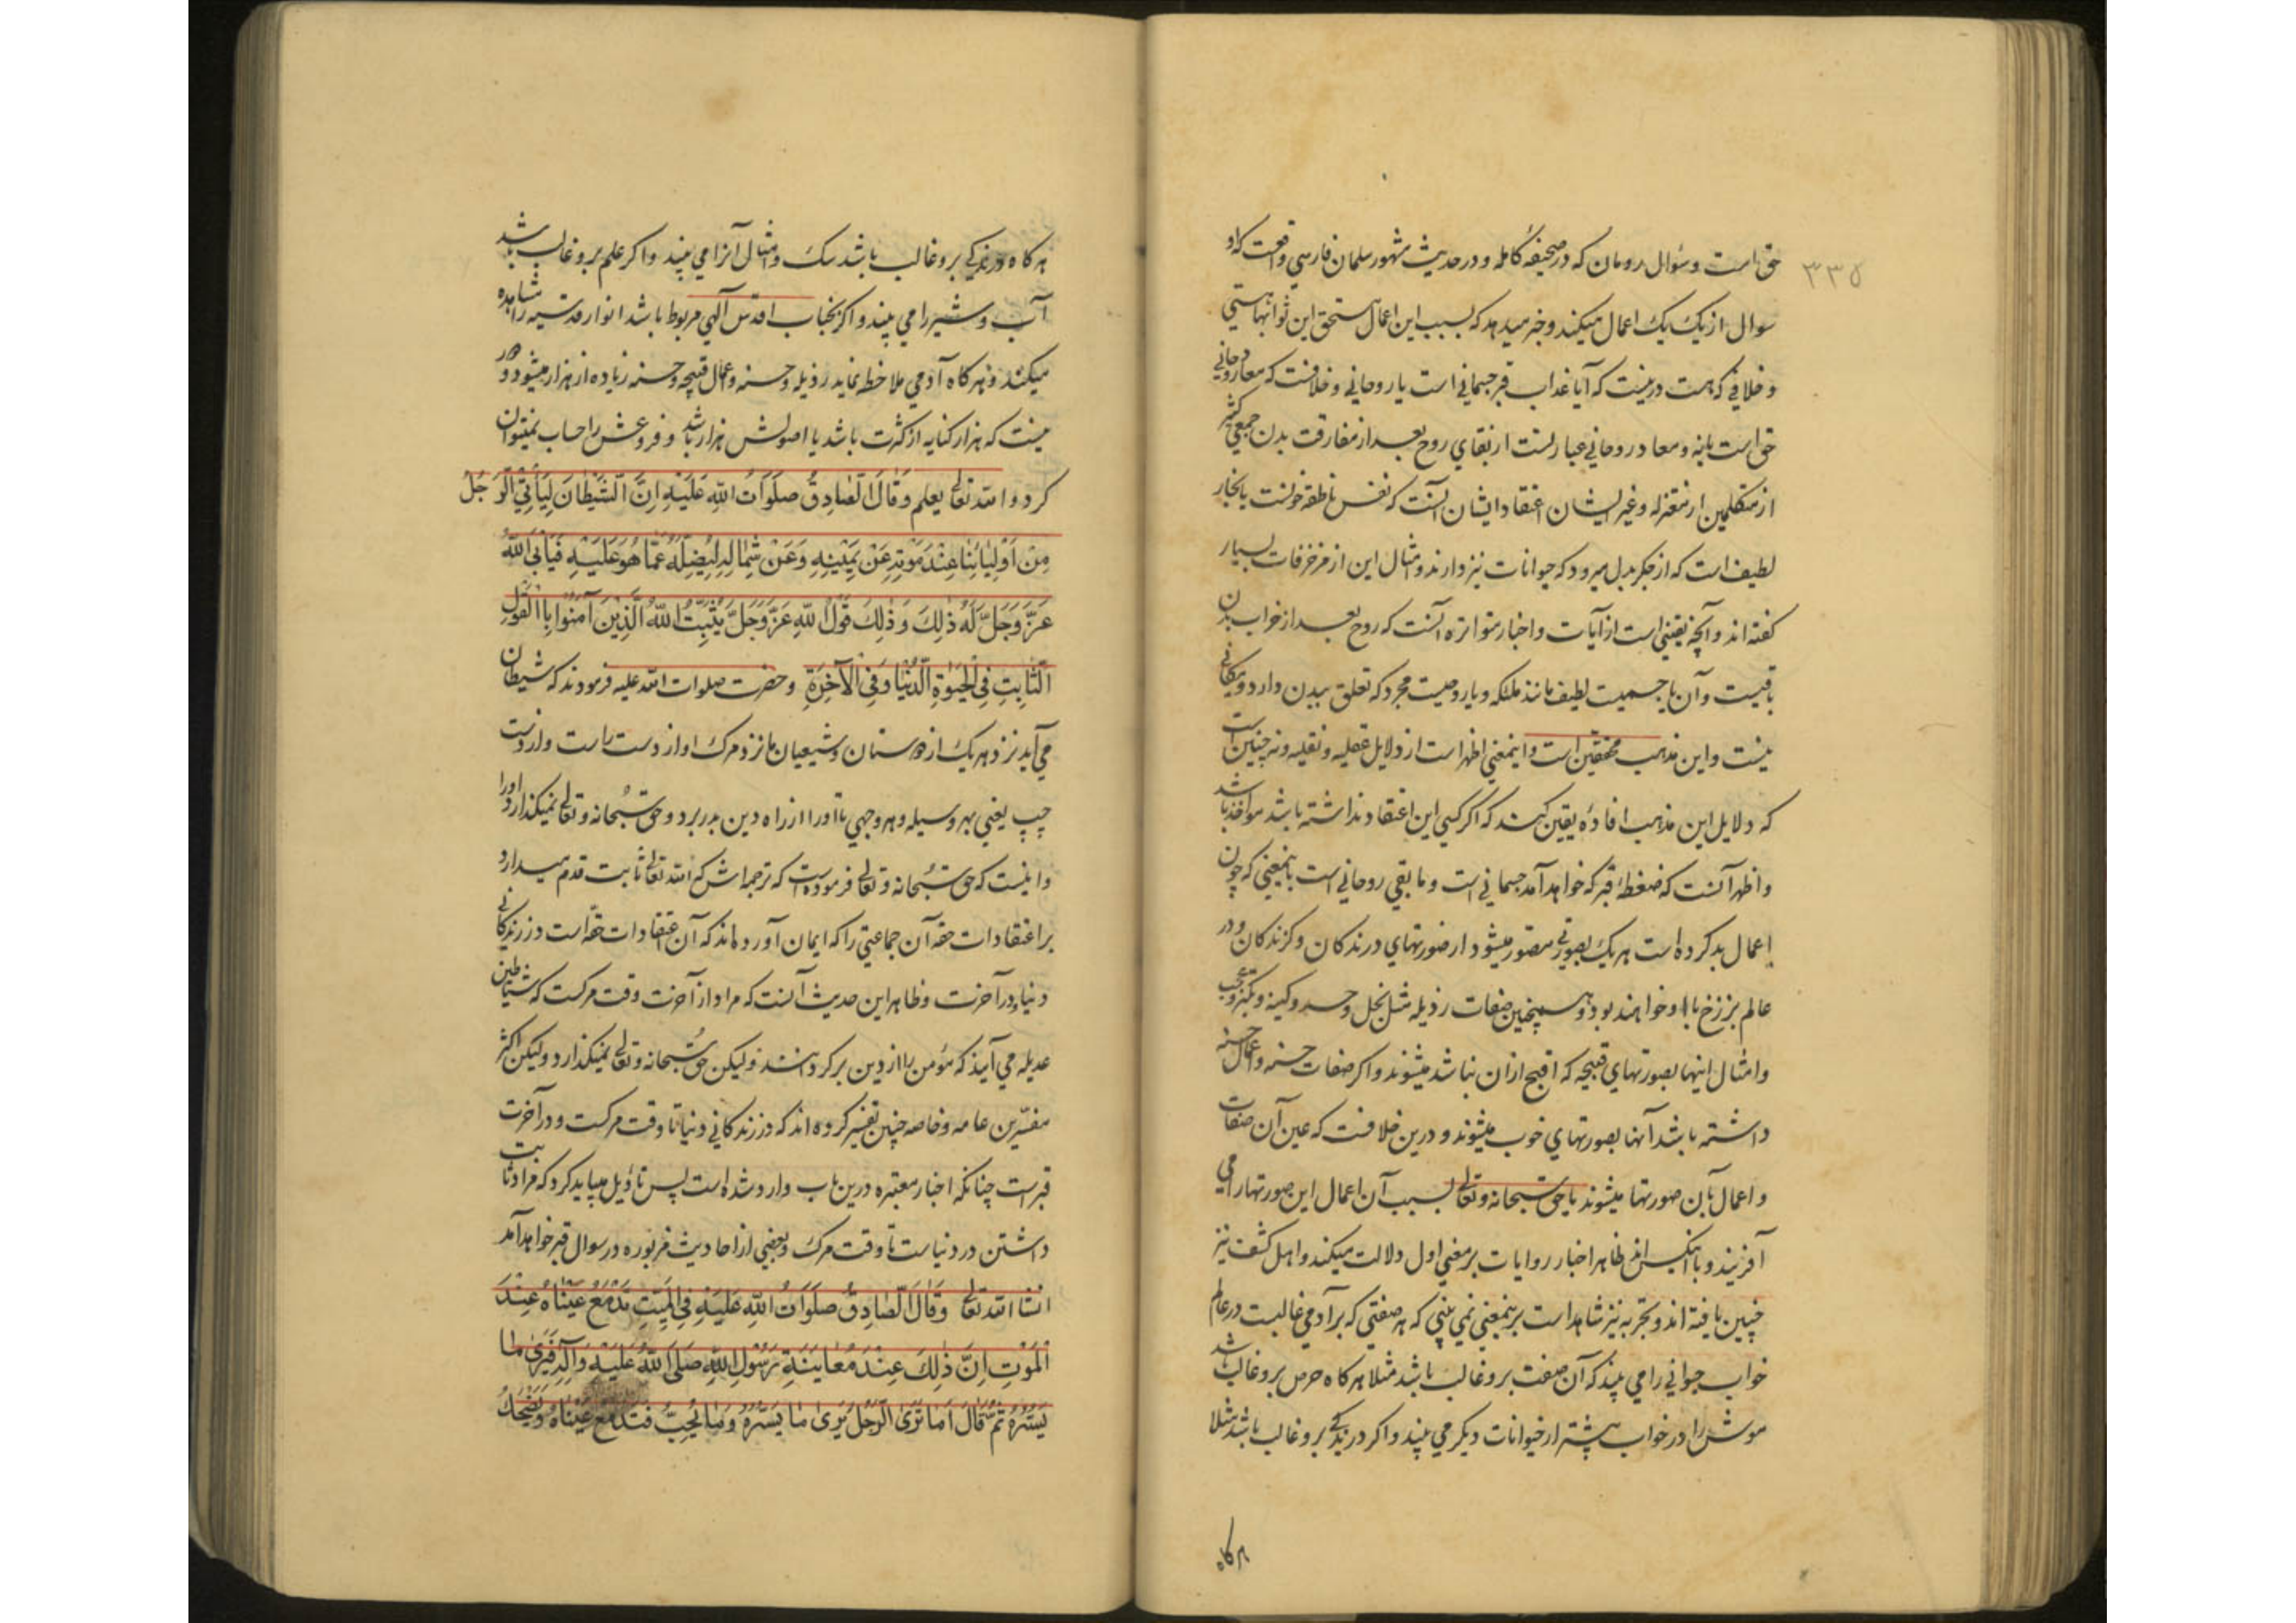 ۳۳۵
حق است و سؤال رومان که در صحیفهٔ کامله و در حدیث مشهور سلمان فارسي واقعست که او
سوال از یک یک اعمال میکند و خبر میدهد که بسبب این اعمال مستحق این ثوابها هستي
و خلافي که هست درینست که آیا عذاب قبر جسماني است یا روحاني و خلافست که معاد روحاني
حق است یا نه و معاد روحاني عبارتست از بقاي روح بعد از مفارقت بدن جمعي کثیر
از متکلمین از معتزله و غیر ایشان اعتقاد ایشان آنست که نفس ناطقه خونست یا بخار
لطیف است که از جکر بدل میرود که حیوانات نیز دارند و امثال این از مزخرفات بسیار
کفته اند و آنچه یقیني است از آیات و اخبار متواتره آنست که روح بعد از خراب بدن
باقیست و آن یا جسمیت لطیف مانند ملئکه و یا روحیست مجرد که تعلق ببدن دارد و مکاني
نیست و این مذهب محققین است و اینمعني اظهر است از دلایل عقلیه و نقلیه و نه چنین است
که دلایل این مذهب افادهٔ یقین کند که اکر کسي این اعتقاد نداشته باشد مؤاخذ باشد
و اظهر آنست که ضغطهٔ قبر که خواهد آمد جسماني است و ما بقي روحاني است باینمعني که چون
اعمال بد کرده است هر یک بصورتي مصور میشود از صورتهاي درندکان و کزندکان و در
عالم برزخ با او خواهند بود و همچنین صفات رذیله مثل بخل و حسد و کینه و تکبر و عجب
و امثال اینها بصورتهاي قبیحه که اقبح از ان نباشد میشوند و اکر صفات حسنه و اعمال حسنه
داشته باشد آنها بصورتهاي خوب میشوند و درین خلافست که عین آن صفات
و اعمال بآن صورتها میشوند یا حق سبحانه و تعالي بسبب آن اعمال این صورتها را مي
آفریند و ظاهر اخبار روایات بر معني اول دلالت میکند و اهل کشف نیز
چنین یافته اند و تجربه نیز شاهد است برینمعني نمي بیني که هر صفتي که بر آدمي غالبست در عالم
خواب حیواني را مي بیند که آن صفت برو غالب باشد مثلا هر کاه حرص برو غالب باشد
موش را در خواب بیشتر از حیوانات دیکر مي بیند و اکر درندکي برو غالب باشد مثلا
هر کاه
هر کاه درندکي برو غالب باشد سک و امثال آنرا مي بیند و اکر علم برو غالب باشد
آب و شیر را مي بیند و اکر بجناب اقدس آلهي مربوط باشد انوار قدسیه را مشاهده
میکند و هر کاه آدمي ملاحظه نماید رذیله و حسنه و اعمال قبیحه و حسنه زیاده از هزار میشود و دور
نیست که هزار کنایه از کثرت باشد یا اصولش هزار باشد و فروعش را حساب نمیتوان
کرد و الله تعالي یعلم وَقَالَ الصَّادِقُ صَلَوَاتُ اللهِ عَلَيْهِ اِنَّ الشَّيْطَانَ لَيَأْتِي الرَّجُلَ
مِنْ اَوْلِيَائِنَا عِنْدَ مَوْتِهِ عَنْ يَمِينِهِ وَعَنْ شِمَالِهِ لِيُضِلَّهُ عَمَّا هُوَ عَلَيْهِ فَيَأْبَى اللهُ
عَزَّ وَجَلَّ لَهُ ذٰلِكَ وَ ذٰلِكَ قَوْلُ اللهِ عَزَّ وَجَلَّ يُثَبِّتُ اللهُ الَّذِيْنَ آمَنُوا بِالْقَوْلِ
الثَّابِتِ فِي الْحَيٰوةِ الدُّنْيَا وَفِي الْآخِرَةِ و حضرت صلوات الله علیه فرمودند که شیطان
مي آید نزد هر یک از دوستان و شیعیان ما نزد مرک او از دست راست و از دست
چپ یعني بهر وسیله و هر وجهي تا او را از راه دین بدر برد و حق سبحانه و تعالي نمیکذارد او را
و اینست که حق سبحانه و تعالي فرموده است که ترجمه اش که الله تعالي ثابت قدم میدارد
بر اعتقادات حقه آن جماعتي را که ایمان آورده اند که آن اعتقادات حقه است در زندکاني
دنیا و در آخرت و ظاهر این حدیث آنست که مراد از آخرت وقت مرکست که شیاطین
عدیله مي آیند که مؤمن را از دین برکردانند و لیکن حق سبحانه و تعالي نمیکذارد و لیکن اکثر
مفسرین عامه و خاصه چنین تفسیر کرده اند که در زندکاني دنیا تا وقت مرکست و در آخرت
قبر است چنانکه اخبار معتبره درین باب وارد شده است پس تأویل میباید کرد که مراد ثابت
داشتن در دنیاست تا وقت مرک و بعضي از احادیث مزبوره در سوال قبر خواهد آمد
انشاالله تعالي وَقَالَ الصَّادِقُ صَلَوَاتُ اللهِ عَلَيْهِ فِي الْمَيِّتِ تَدْمَعُ عَيْنَاهُ عِنْدَ
الْمَوْتِ اِنَّ ذٰلِكَ عِنْدَ مُعَايَنَةِ رَسُوْلِ اللهِ صَلَّى اللهُ عَلَيْهِ وَآلِهِ فَيَرٰى مَا
يَسُرُّهُ ثُمَّ قَالَ اَمَا تَرَى الرَّجُلَ يَرٰى مَا يَسُرُّهُ وَمَا يُحِبُّ فَتَدْمَعُ عَيْنَاهُ وَيَضْحَكُ